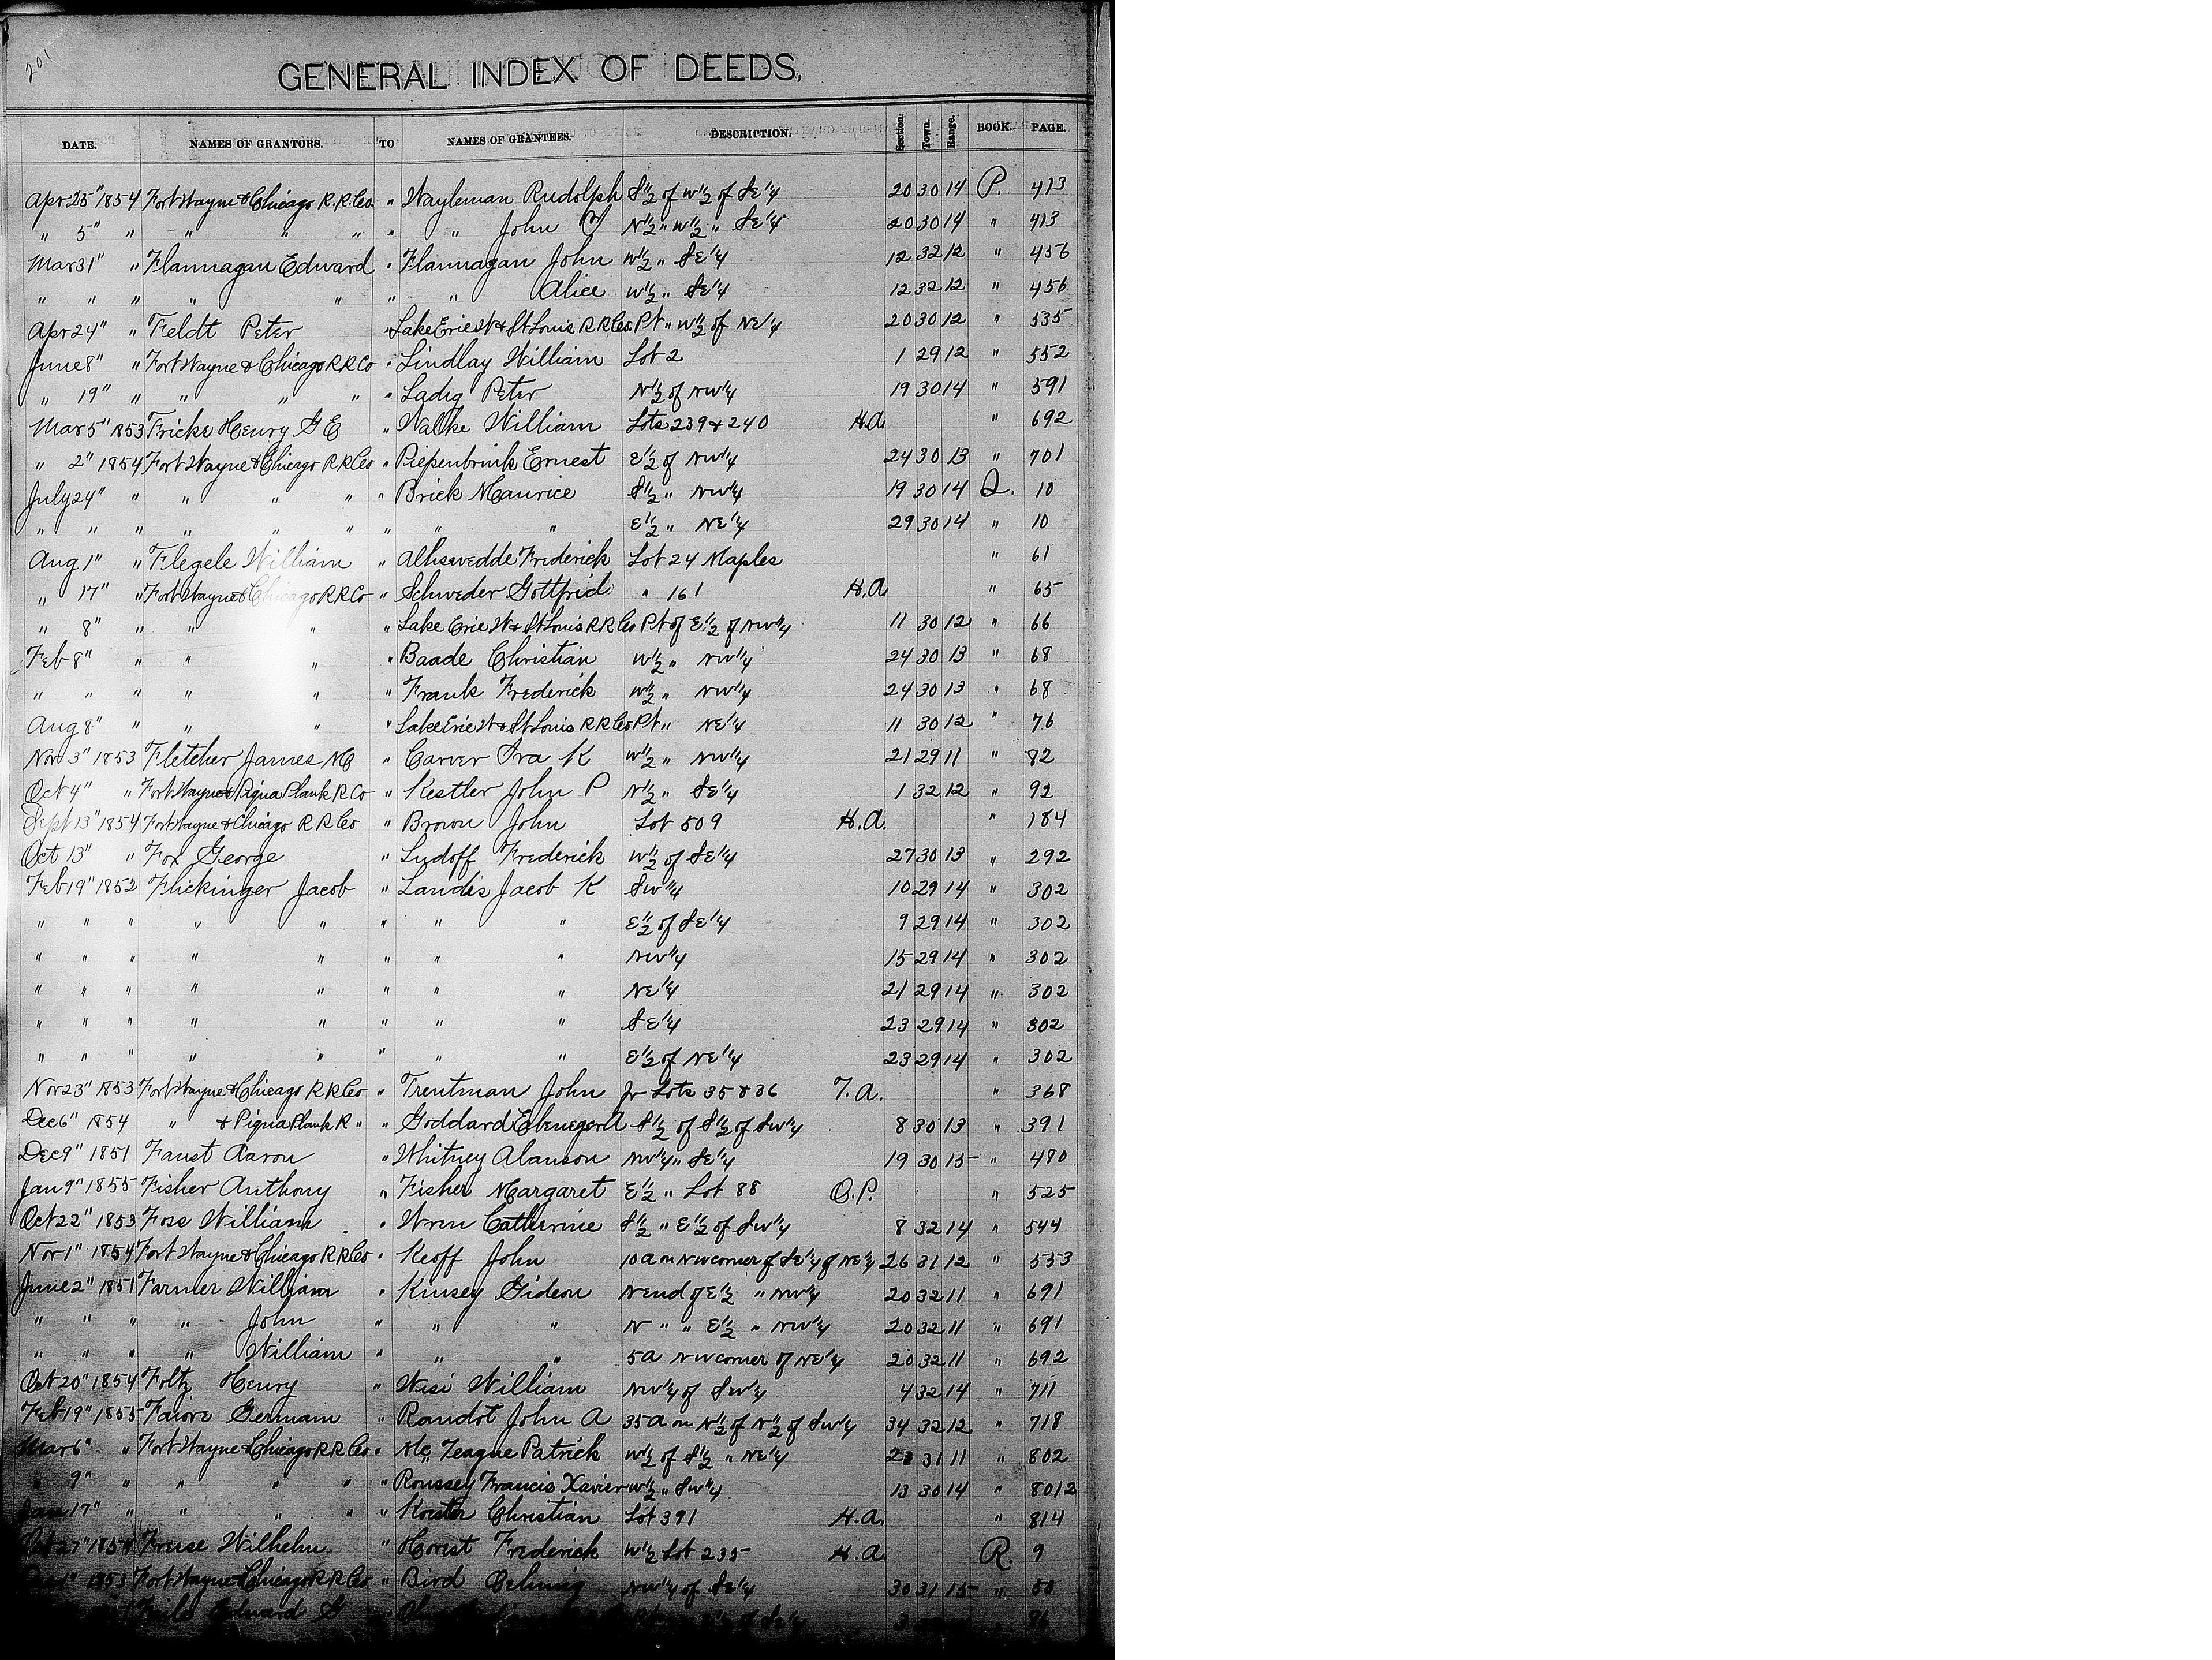 201
GENERAL INDEX OF DEEDS.
DATE. NAMES OF GRANTORS. TO NAMES OF GRANTEES. DESCRIPTION. Section. Town. Range. BOOK. PAGE.
Apr 25" 1854 Fort Wayne & Chicago R.R.Co. " Wayleman Rudolph S 1/2 of W 1/2 of SE 1/4 20 30 14 P. 413
" 5" " " " " " " John N 1/2 " W 1/2 " SE 1/4 20 30 14 " 413
Mar 31" " Flannagan Edward " Flannagan John W 1/2 " SE 1/4 12 32 12 " 456
" " " " " " " Alice W 1/2 " SE 1/4 12 32 12 " 456
Apr 24" " Feldt Peter " Lake Erie W & St Louis R R Co. Pt " W 1/2 of NE 1/4 20 30 12 " 535
June 8" " Fort Wayne & Chicago R R Co " Lindlay William Lot 2 1 29 12 " 552
" 19" " " " " " Ladig Peter N 1/2 of NW 1/4 19 30 14 " 591
Mar 5" 1853 Fricke Henry G E " Walke William Lots 239 & 240 H.A. " 692
" 2" 1854 Fort Wayne & Chicago R R Co " Piepenbrink Ernest E 1/2 of NW 1/4 24 30 13 " 701
July 24" " " " " " Brick Maurice S 1/2 " NW 1/4 19 30 14 Q. 10
" " " " " " " " " E 1/2 " NE 1/4 29 30 14 " 10
Aug 1" " Flegele William " Alhswedde Frederick Lot 24 Maples " 61
" 17" " Fort Wayne & Chicago R R Co " Schweder Gottfrid " 161 H.A. " 65
" 8" " " " " Lake Erie W & St Louis R R Co Pt of E 1/2 of NW 1/4 11 30 12 " 66
Feb 8" " " " " Baade Christian W 1/2 " NW 1/4 24 30 13 " 68
" " " " " " Frank Frederick W 1/2 " NW 1/4 24 30 13 " 68
Aug 8" " " " " Lake Erie W & St Louis R R Co Pt " NE 1/4 11 30 12 " 76
Nov 3" 1853 Fletcher James M C " Carver Ira K W 1/2 " NW 1/4 21 29 11 " 82
Oct 4" " Fort Wayne & Piqua Plank R Co " Kestler John P N 1/2 " SE 1/4 1 32 12 " 92
Sept 13" 1854 Fort Wayne & Chicago R R Co " Brown John Lot 509 H.A. " 184
Oct 13" " Fox George " Ludoff Frederick W 1/2 of SE 1/4 27 30 13 " 292
Feb 19" 1852 Flickinger Jacob " Landis Jacob K SW 1/4 10 29 14 " 302
" " " " " " " " E 1/2 of SE 1/4 9 29 14 " 302
" " " " " " " " NW 1/4 15 29 14 " 302
" " " " " " " " NE 1/4 21 29 14 " 302
" " " " " " " " SE 1/4 23 29 14 " 302
" " " " " " " " E 1/2 of NE 1/4 23 29 14 " 302
Nov 23" 1853 Fort Wayne & Chicago R R Co " Trentman John Jr Lots 35 & 36 T.A. " 368
Dec 6" 1854 " & Piqua Plank R " " Goddard Ebenezer A S 1/2 of S 1/2 of SW 1/4 8 30 13 " 391
Dec 9" 1851 Faust Aaron " Whitney Alanson NW 1/4 " SE 1/4 19 30 15 " 480
Jan 9" 1855 Fisher Anthony " Fisher Margaret E 1/2 " Lot 88 O.P. " 525
Oct 22" 1853 Foss William " Wren Catherine S 1/2 " E 1/2 of SW 1/4 8 32 14 " 544
Nov 1" 1854 Fort Wayne & Chicago R R Co " Keoff John 10 a in NW corner of SE 1/4 of NE 1/4 26 31 12 " 553
June 2" 1851 Farmer William " Kinsey Gideon N end of E 1/2 " NW 1/4 20 32 11 " 691
" " " " John " " " N " " E 1/2 " NW 1/4 20 32 11 " 691
" " " " William " " " 5 a NW corner of NE 1/4 20 32 11 " 692
Oct 20" 1854 Foltz Henry " Wisi William NW 1/4 of SW 1/4 4 32 14 " 711
Feb 19" 1855 Faiore Germain " Raudot John A 35 a in N 1/2 of N 1/2 of SW 1/4 34 32 12 " 718
Mar 6" " Fort Wayne & Chicago R R Co " Mc Teague Patrick W 1/2 of S 1/2 " NE 1/4 31 11 " 802
" 9" " " " " " Roussey Francis Xavier W 1/2 " SW 1/4 13 30 14 " 8012
Jan 17" " " " " " Koester Christian Lot 391 H.A. " 814
27" 1854 Fruse Wilhelm " Horst Frederick W 1/2 Lot 235 H.A. R. 9
1" 1853 Fort Wayne & Chicago R R Co " Bird NW 1/4 of SE 1/4 30 31 15 " 50
Edward G of SE 1/4 3 86